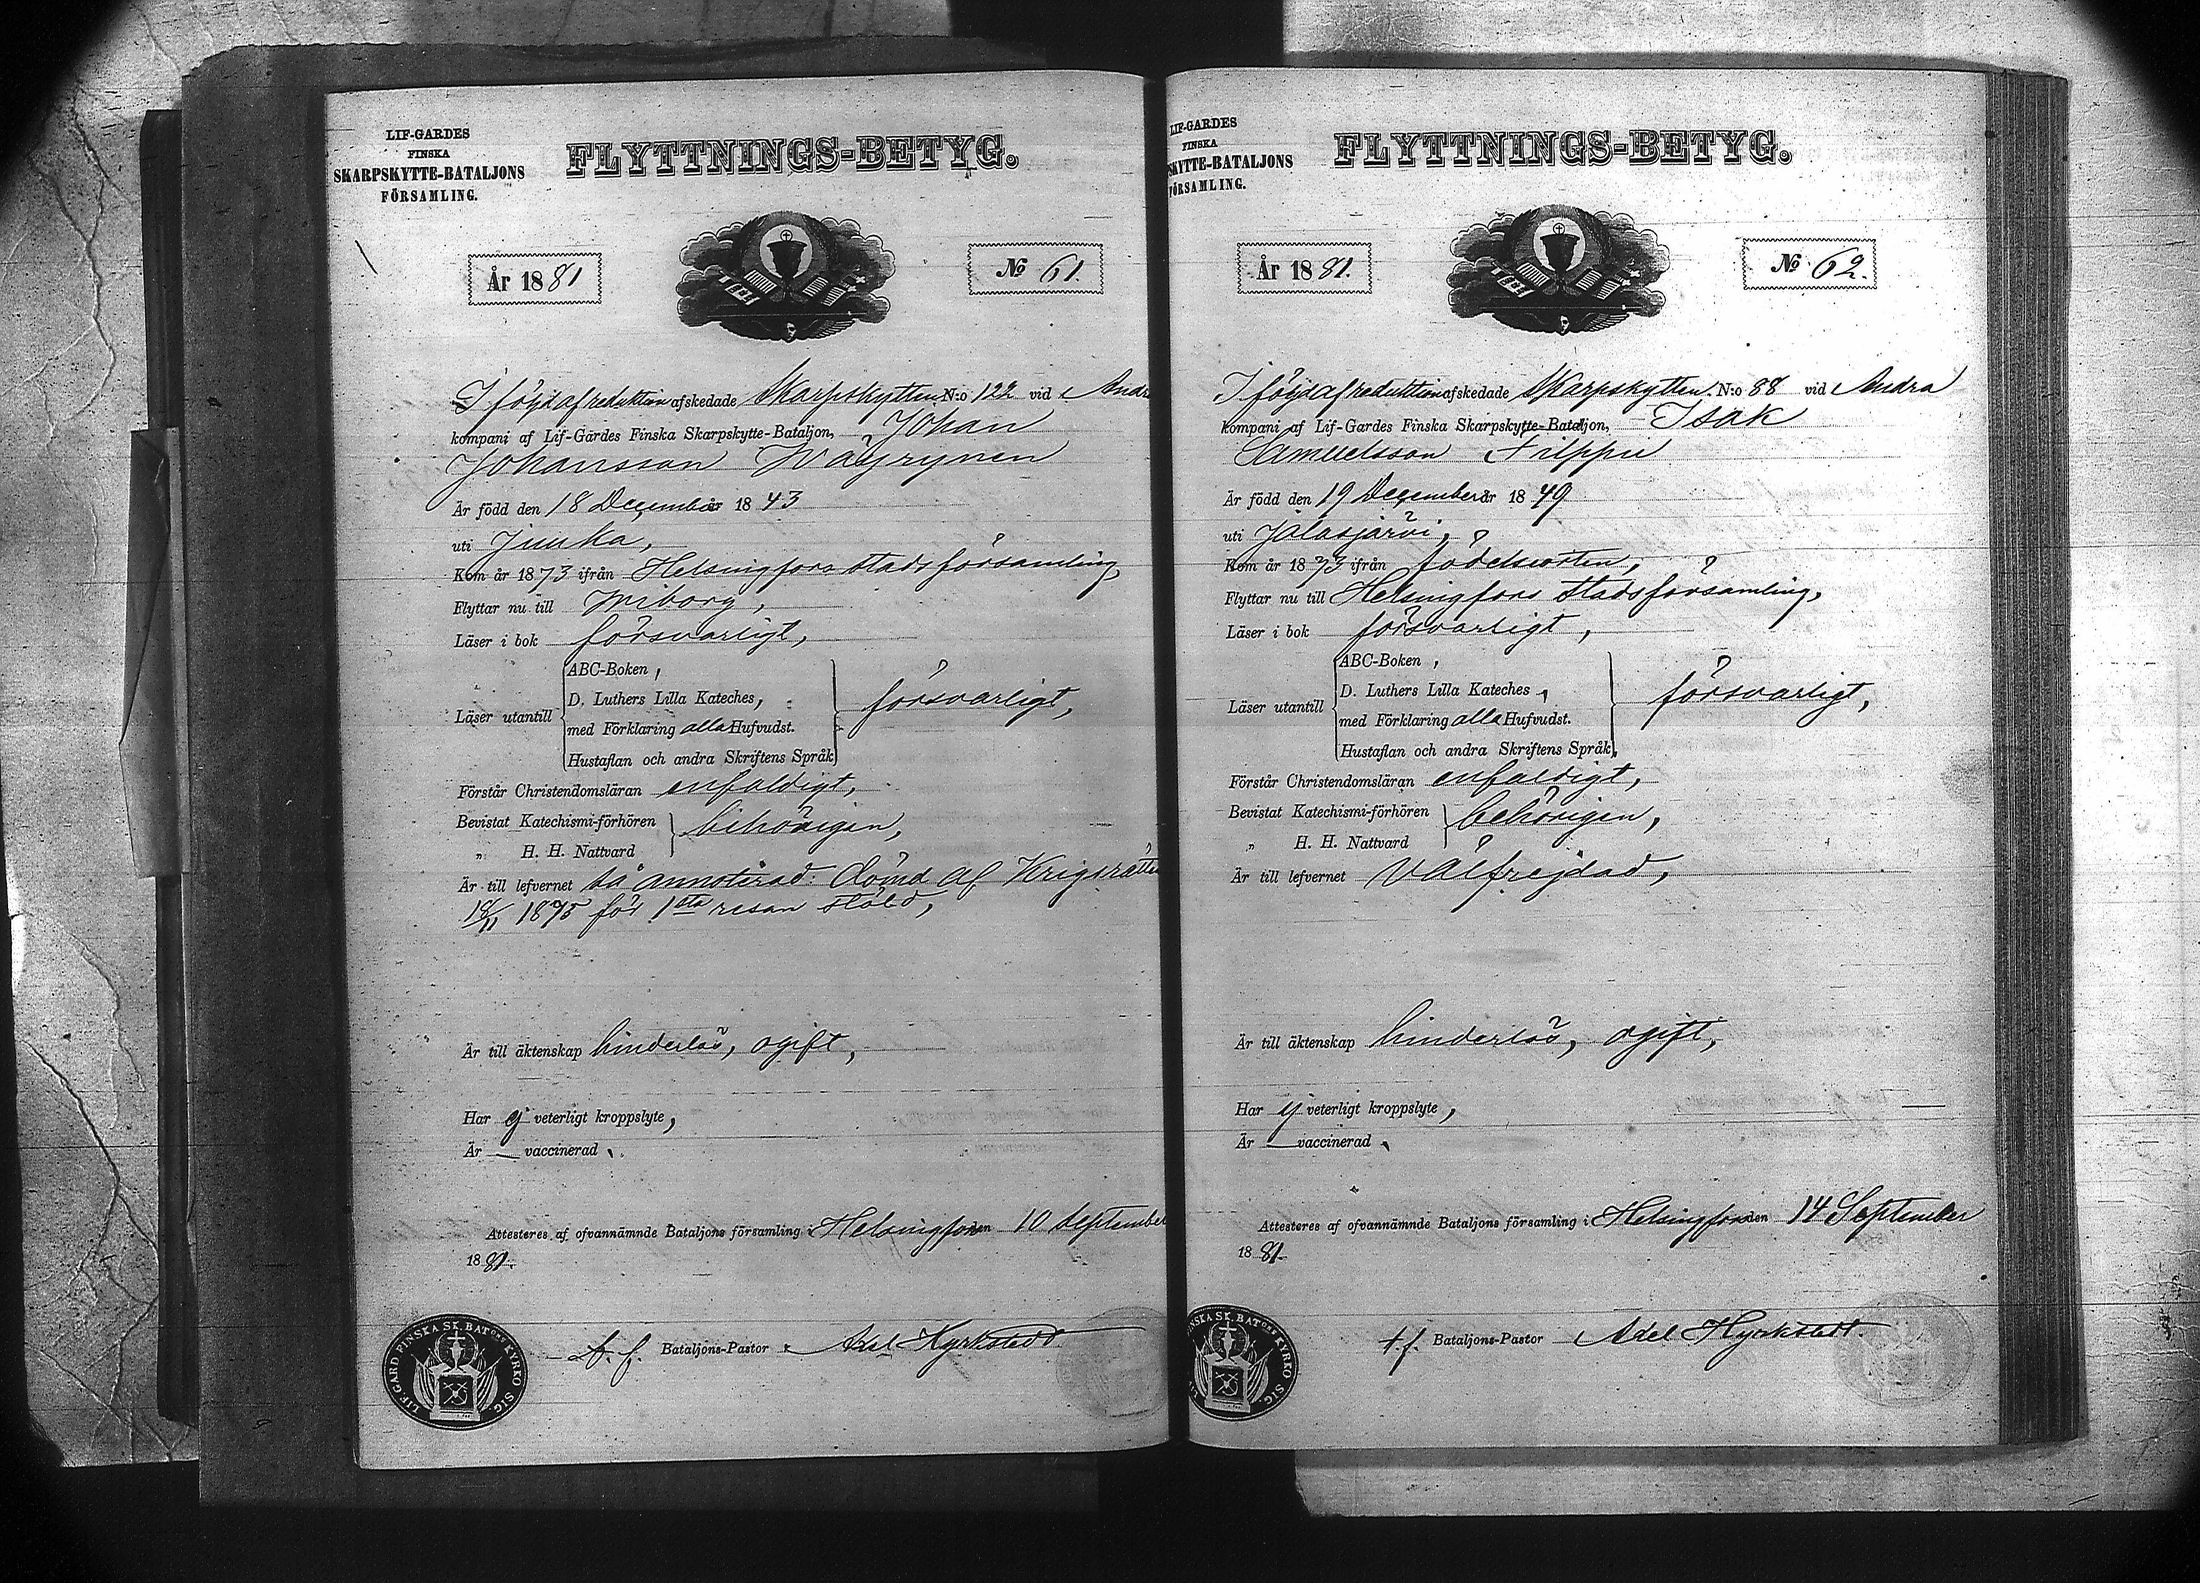 LIF-GARDES
FINSKA
SKARPSKYTTE-BATALJONS
FÖRSAMLING.
FLYTTNINGS-BETYG.
År 1881
No 61.
I följd af reduktion afskedade Skarpskytten N:o 122 vid Andra
kompani af Lif-Gardes Finska Skarpskytte-Bataljon, Johan
Johansson Wäyrynen
Är född den 18 December 1843
uti Juuka,
Kom år 1873 ifrån Helsingfors stadsförsamling,
Flyttar nu till Wiborg,
Läser i bok försvarligt,
Läser utantill
ABC-Boken,
D. Luthers Lilla Kateches,
med Förklaring alla Hufvudst.
Hustaflan och andra Skriftens Språk
försvarligt,
Förstår Christendomsläran enfaldigt,
Bevistat Katechismi-förhören
„ H. H. Nattvard
behörigen,
Är till lefvernet så annoterad: dömd af Krigsrätten
18/11 1875 för 1sta resan stöld,
Är till äktenskap hinderlös, ogift,
Har ej veterligt kroppslyte,
Är — vaccinerad.
Attesteres af ofvannämnde Bataljons församling i Helsingfors den 10 September
1881.
t. f. Bataljons-Pastor Axel Hyrkstedt
LIF-GARD FINSKA SK. BATONS KYRKO SIG.
LIF-GARDES
FINSKA
SKYTTE-BATALJONS
FÖRSAMLING.
FLYTTNINGS-BETYG.
År 1881.
No 62.
I följd af reduktion afskedade Skarpskytten N:o 88 vid Andra
kompani af Lif-Gardes Finska Skarpskytte-Bataljon, Isak
Samuelsson Filppu
Är född den 19 December år 1849
uti Jalasjärvi,
Kom år 1873 ifrån födelseorten,
Flyttar nu till Helsingfors stadsförsamling,
Läser i bok försvarligt,
Läser utantill
ABC-Boken,
D. Luthers Lilla Kateches,
med Förklaring alla Hufvudst.
Hustaflan och andra Skriftens Språk,
försvarligt,
Förstår Christendomsläran enfaldigt,
Bevistat Katechismi-förhören
„ H. H. Nattvard
behörigen,
Är till lefvernet välfrejdad,
Är till äktenskap hinderlös, ogift,
Har ej veterligt kroppslyte,
Är — vaccinerad.
Attesteres af ofvannämnde Bataljons församling i Helsingfors den 14 September
1881.
t. f. Bataljons-Pastor Axel Hyrkstedt.
FINSKA SK. BATONS KYRKO SIG.